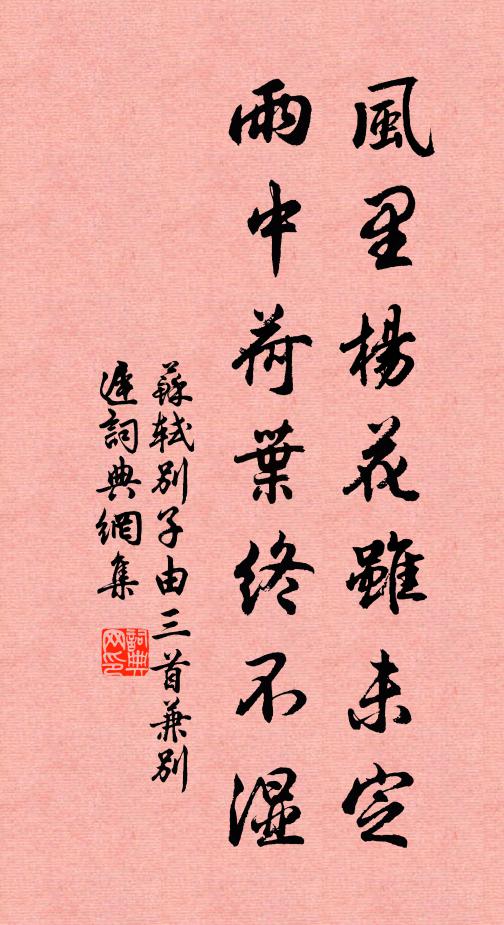 風里楊花雖未定
雨中荷葉終不湿
蘇軾別子由三首兼別
遲詞典網集
詞典网印